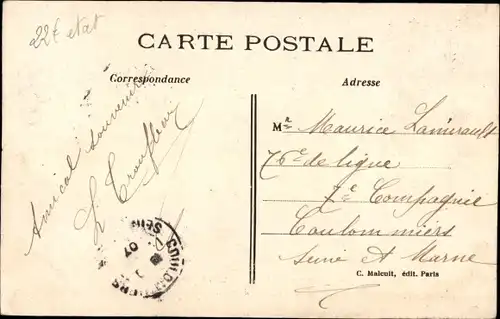 22f etat
CARTE POSTALE
Correspondance
Adresse
Amical souvenir
L
Mr Maurice Lamirault
76e de ligne
7e Compagnie
Coulommiers
Seine et Marne
COULOMMIERS
07
C. Malcuit, édit. Paris